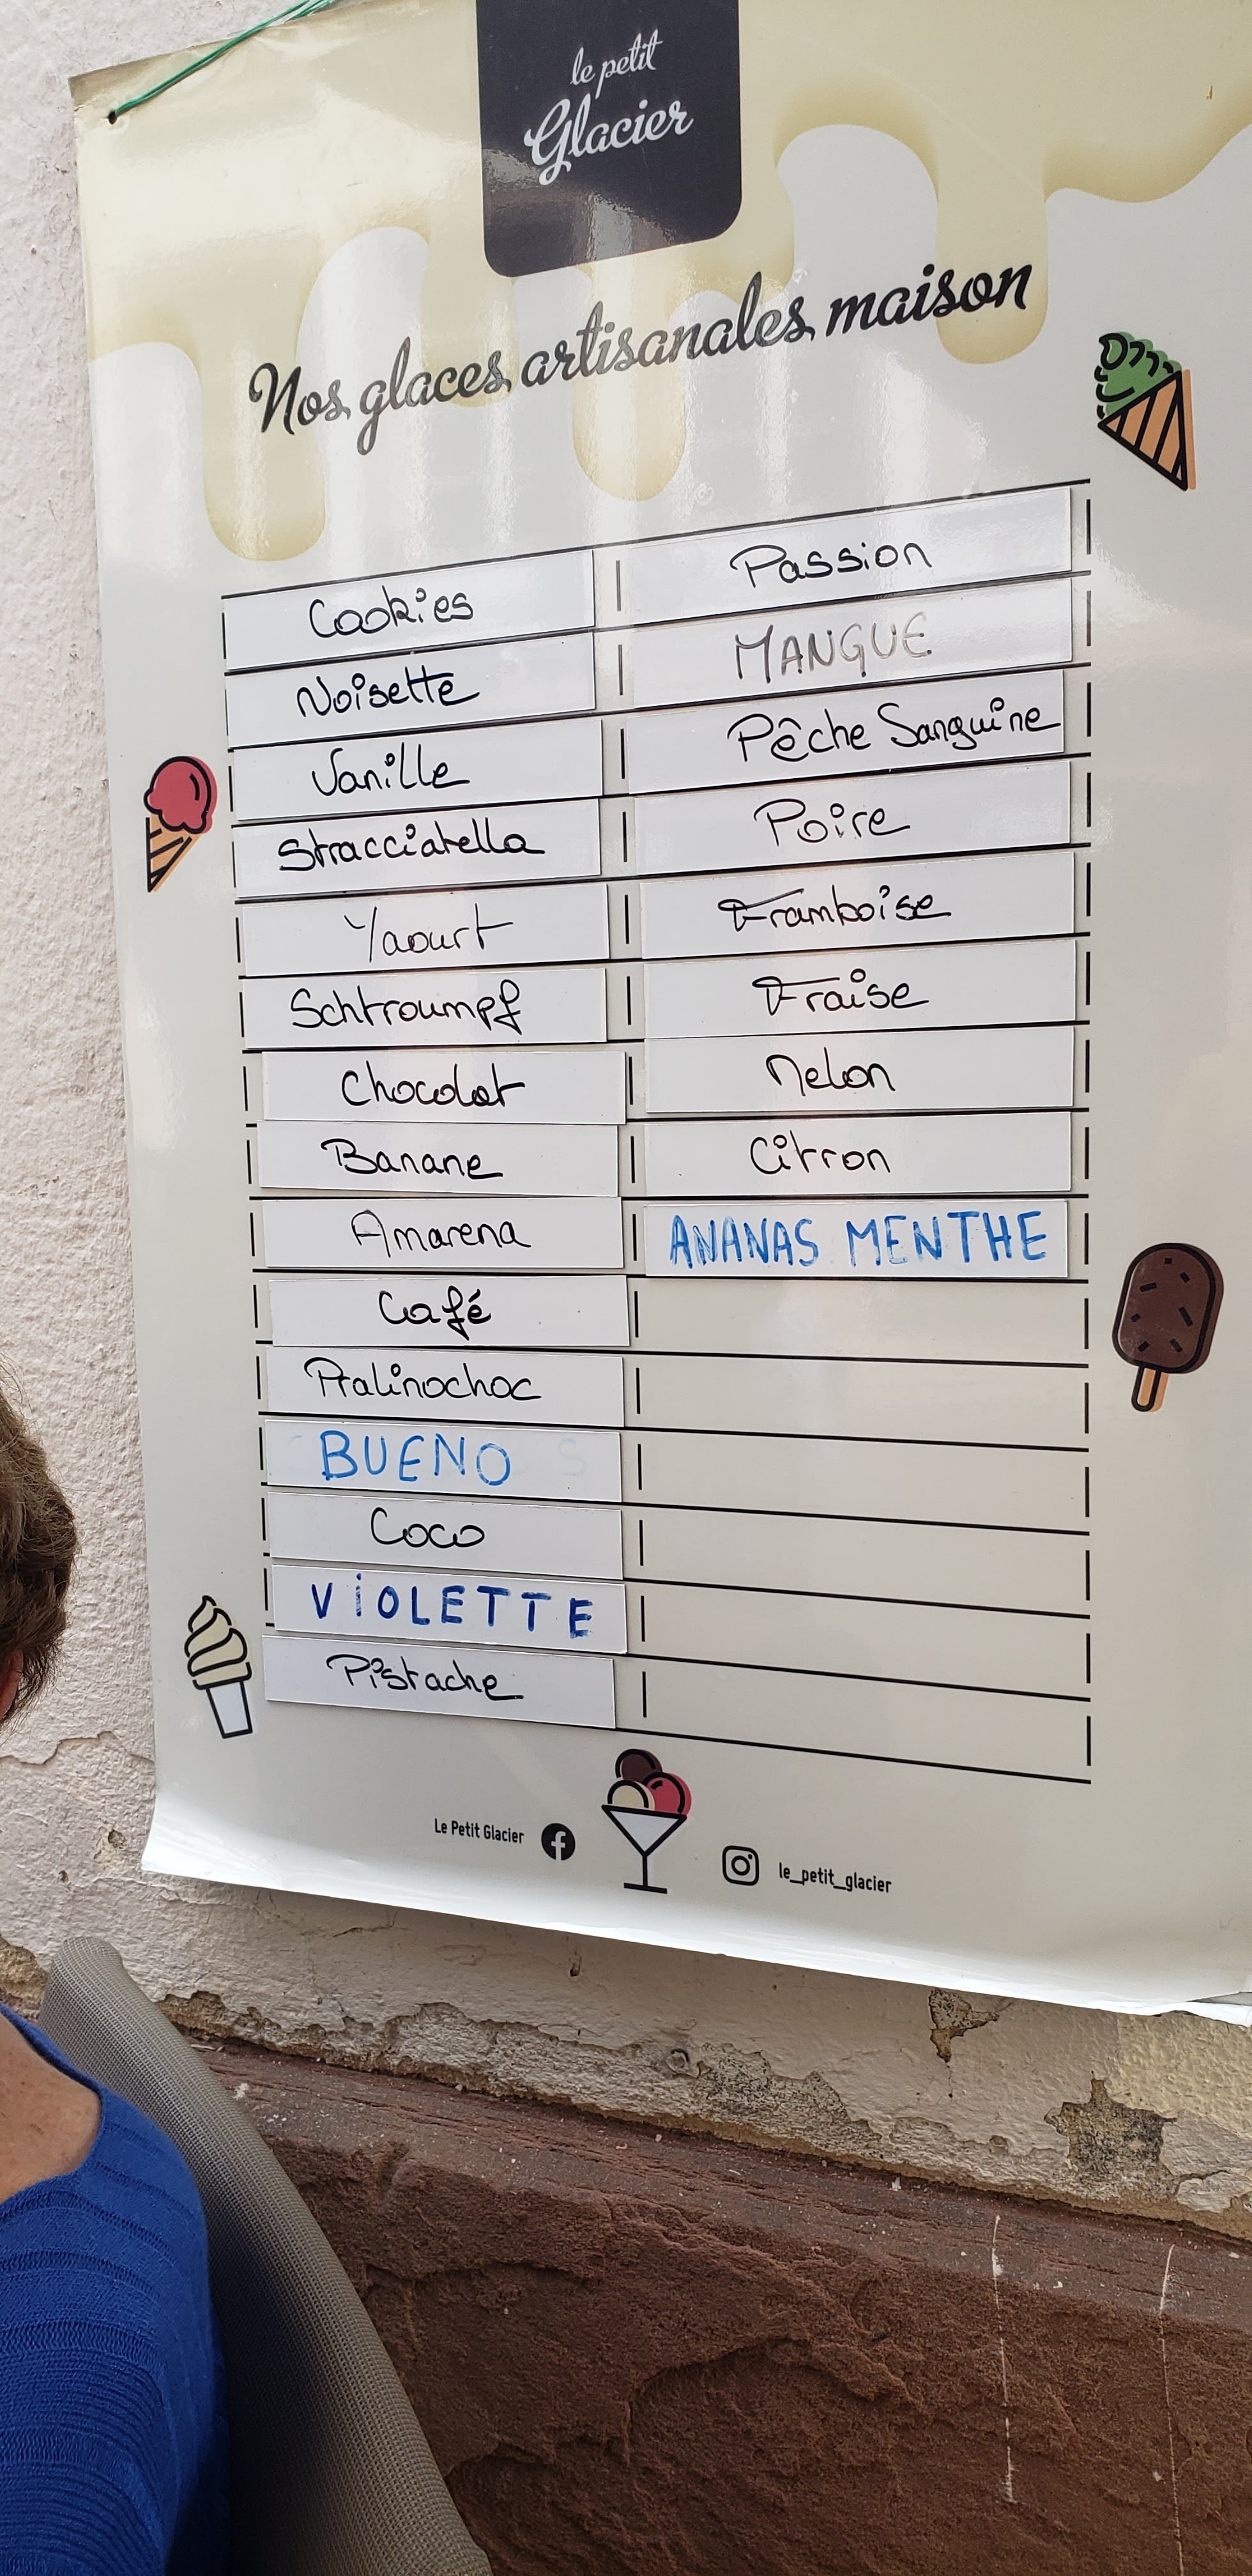 le petit
Glacier
Nos glaces artisanales maison
Cookies
Noisette
Vanille
Stracciatella
Yaourt
Schtroumpf
Chocolat
Banane
Amarena
Café
Pralinochoc
BUENO
Coco
ViOLETTE
Pistache
Passion
MANGUE
Pêche Sanguine
Poire
Framboise
Fraise
Melon
Citron
ANANAS MENTHE
Le Petit Glacier
le_petit_glacier